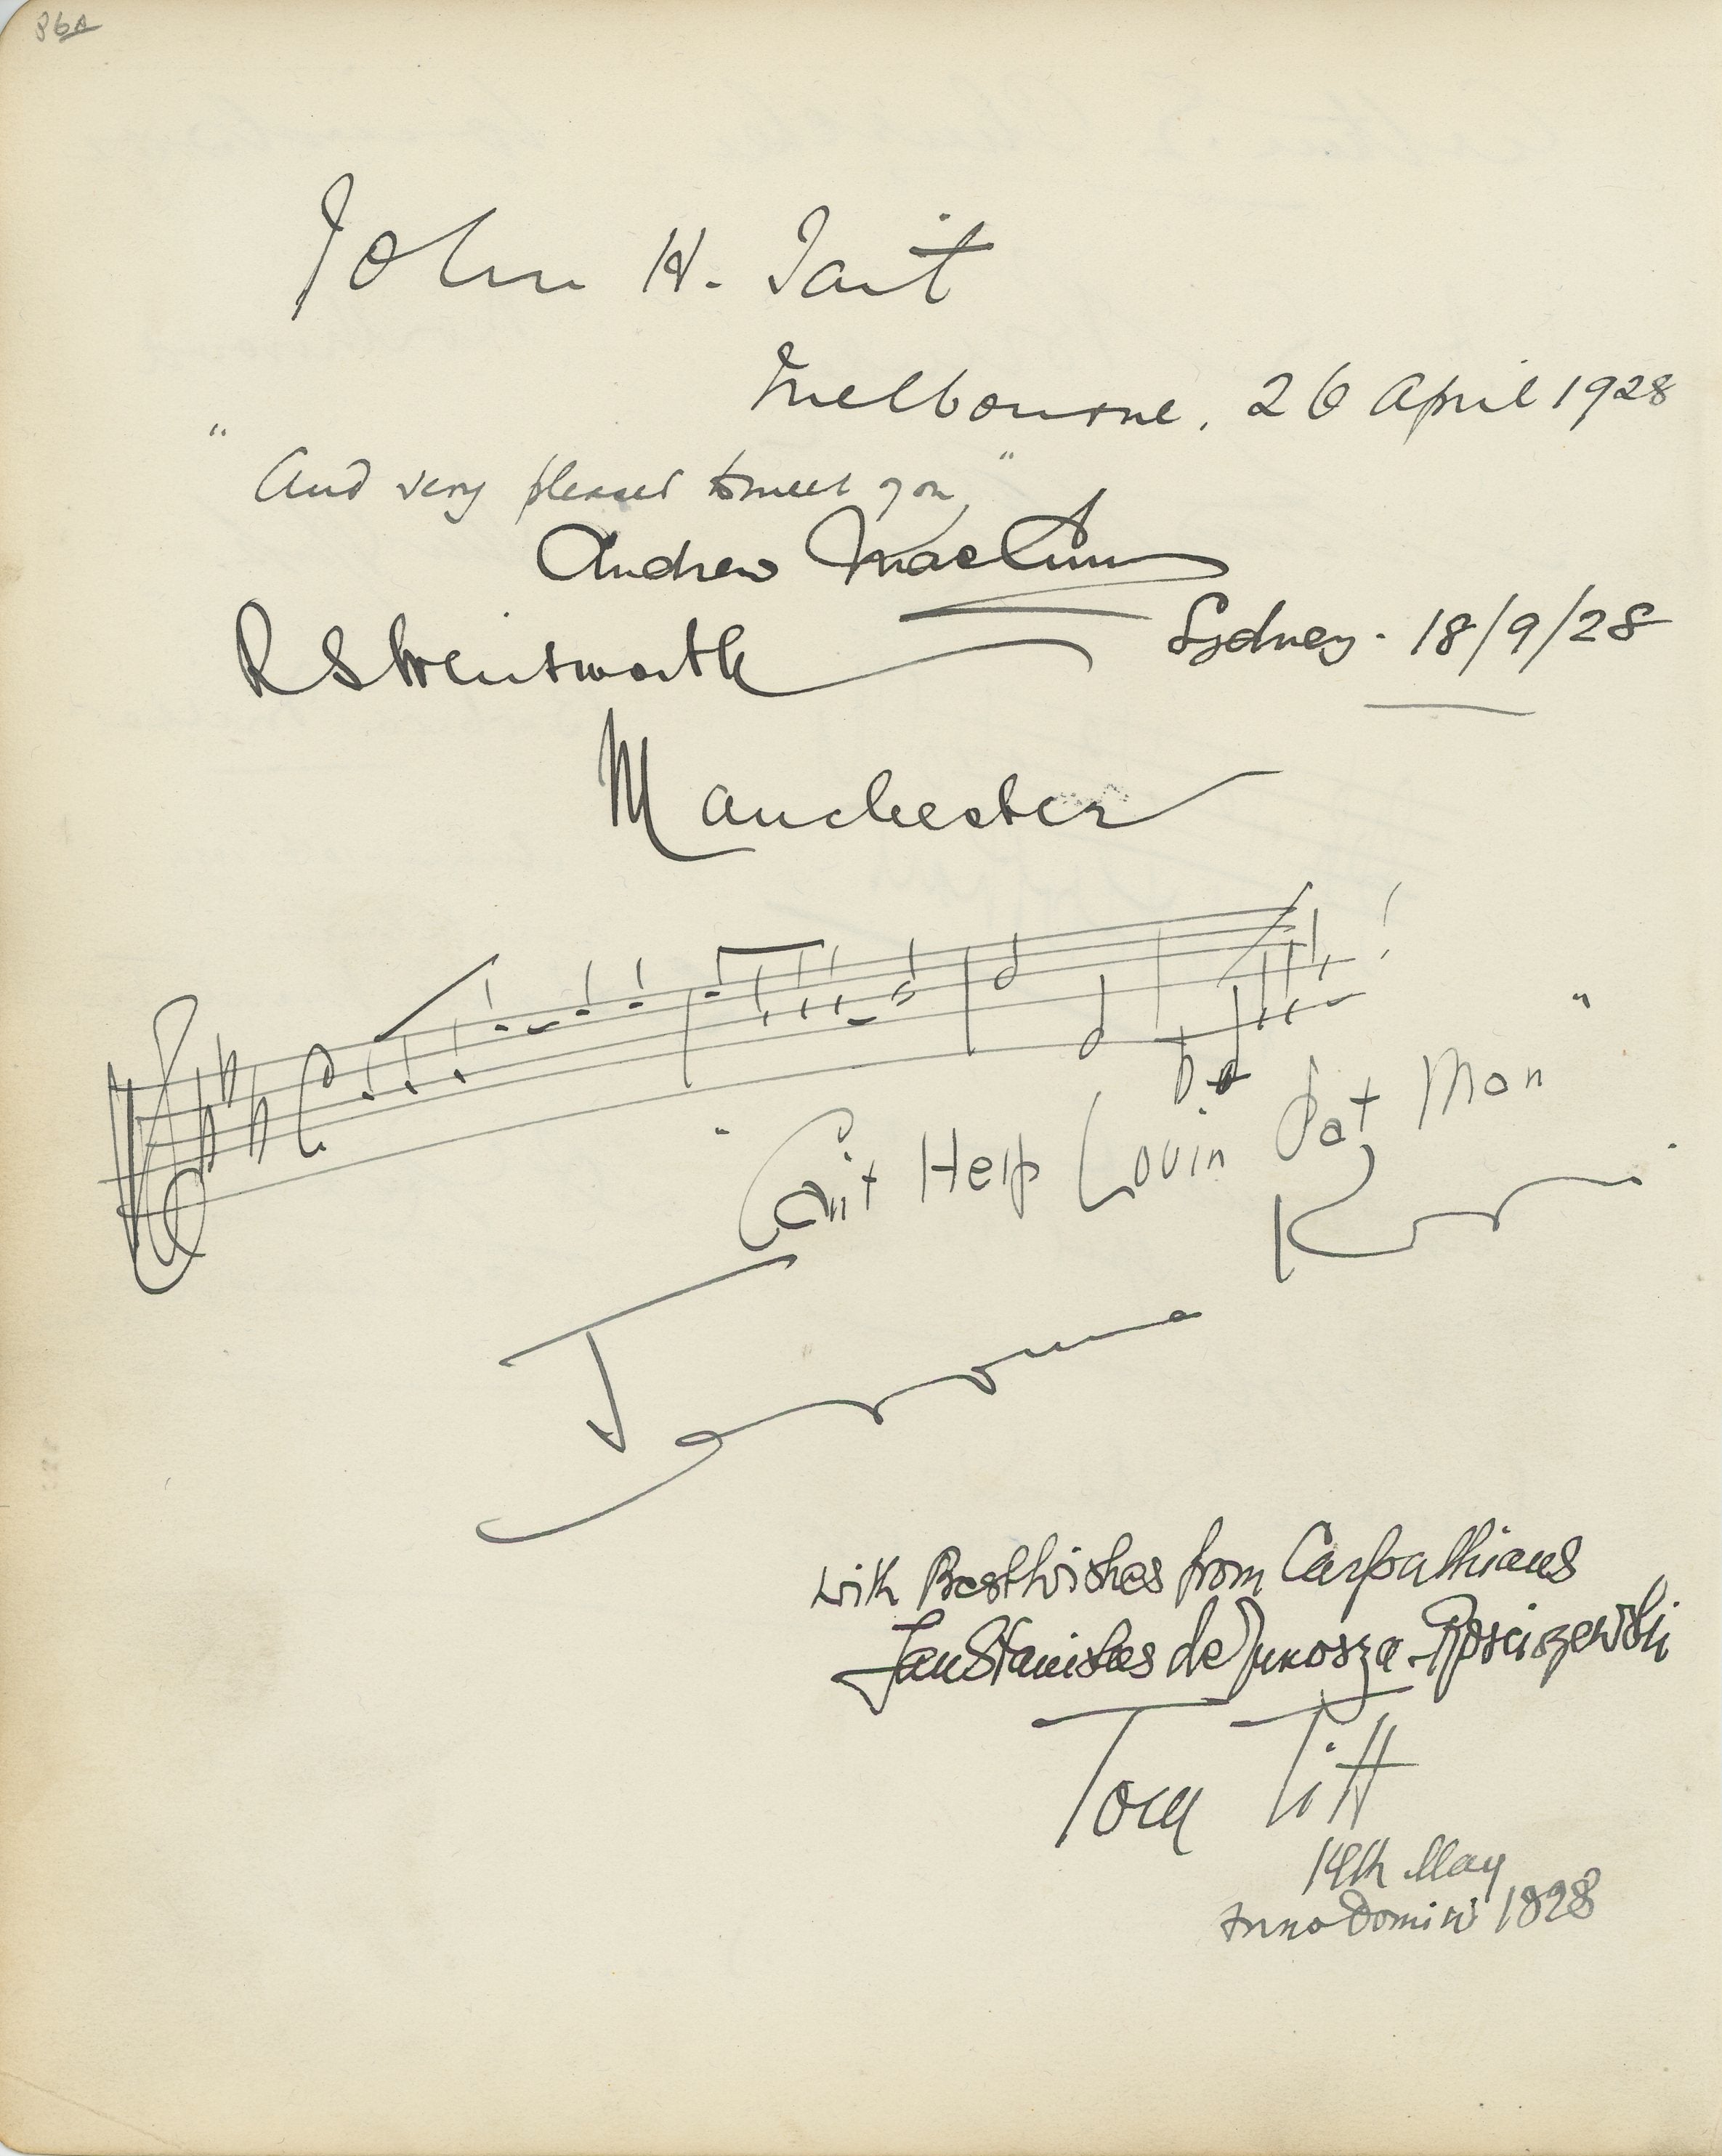 36A
John H. Tait
Melbourne, 26 April 1928
"And very pleased to meet you"
Andrew
Sydney. 18/9/28
R S Wentworth
Manchester
"Can't Help Lovin Dat Man"
Jerome Kern
With Best Wishes from Carpathians
Jan Stanislas de Junosza-Rosciszewski
Tom Titt
14th May
Anno Domini 1928